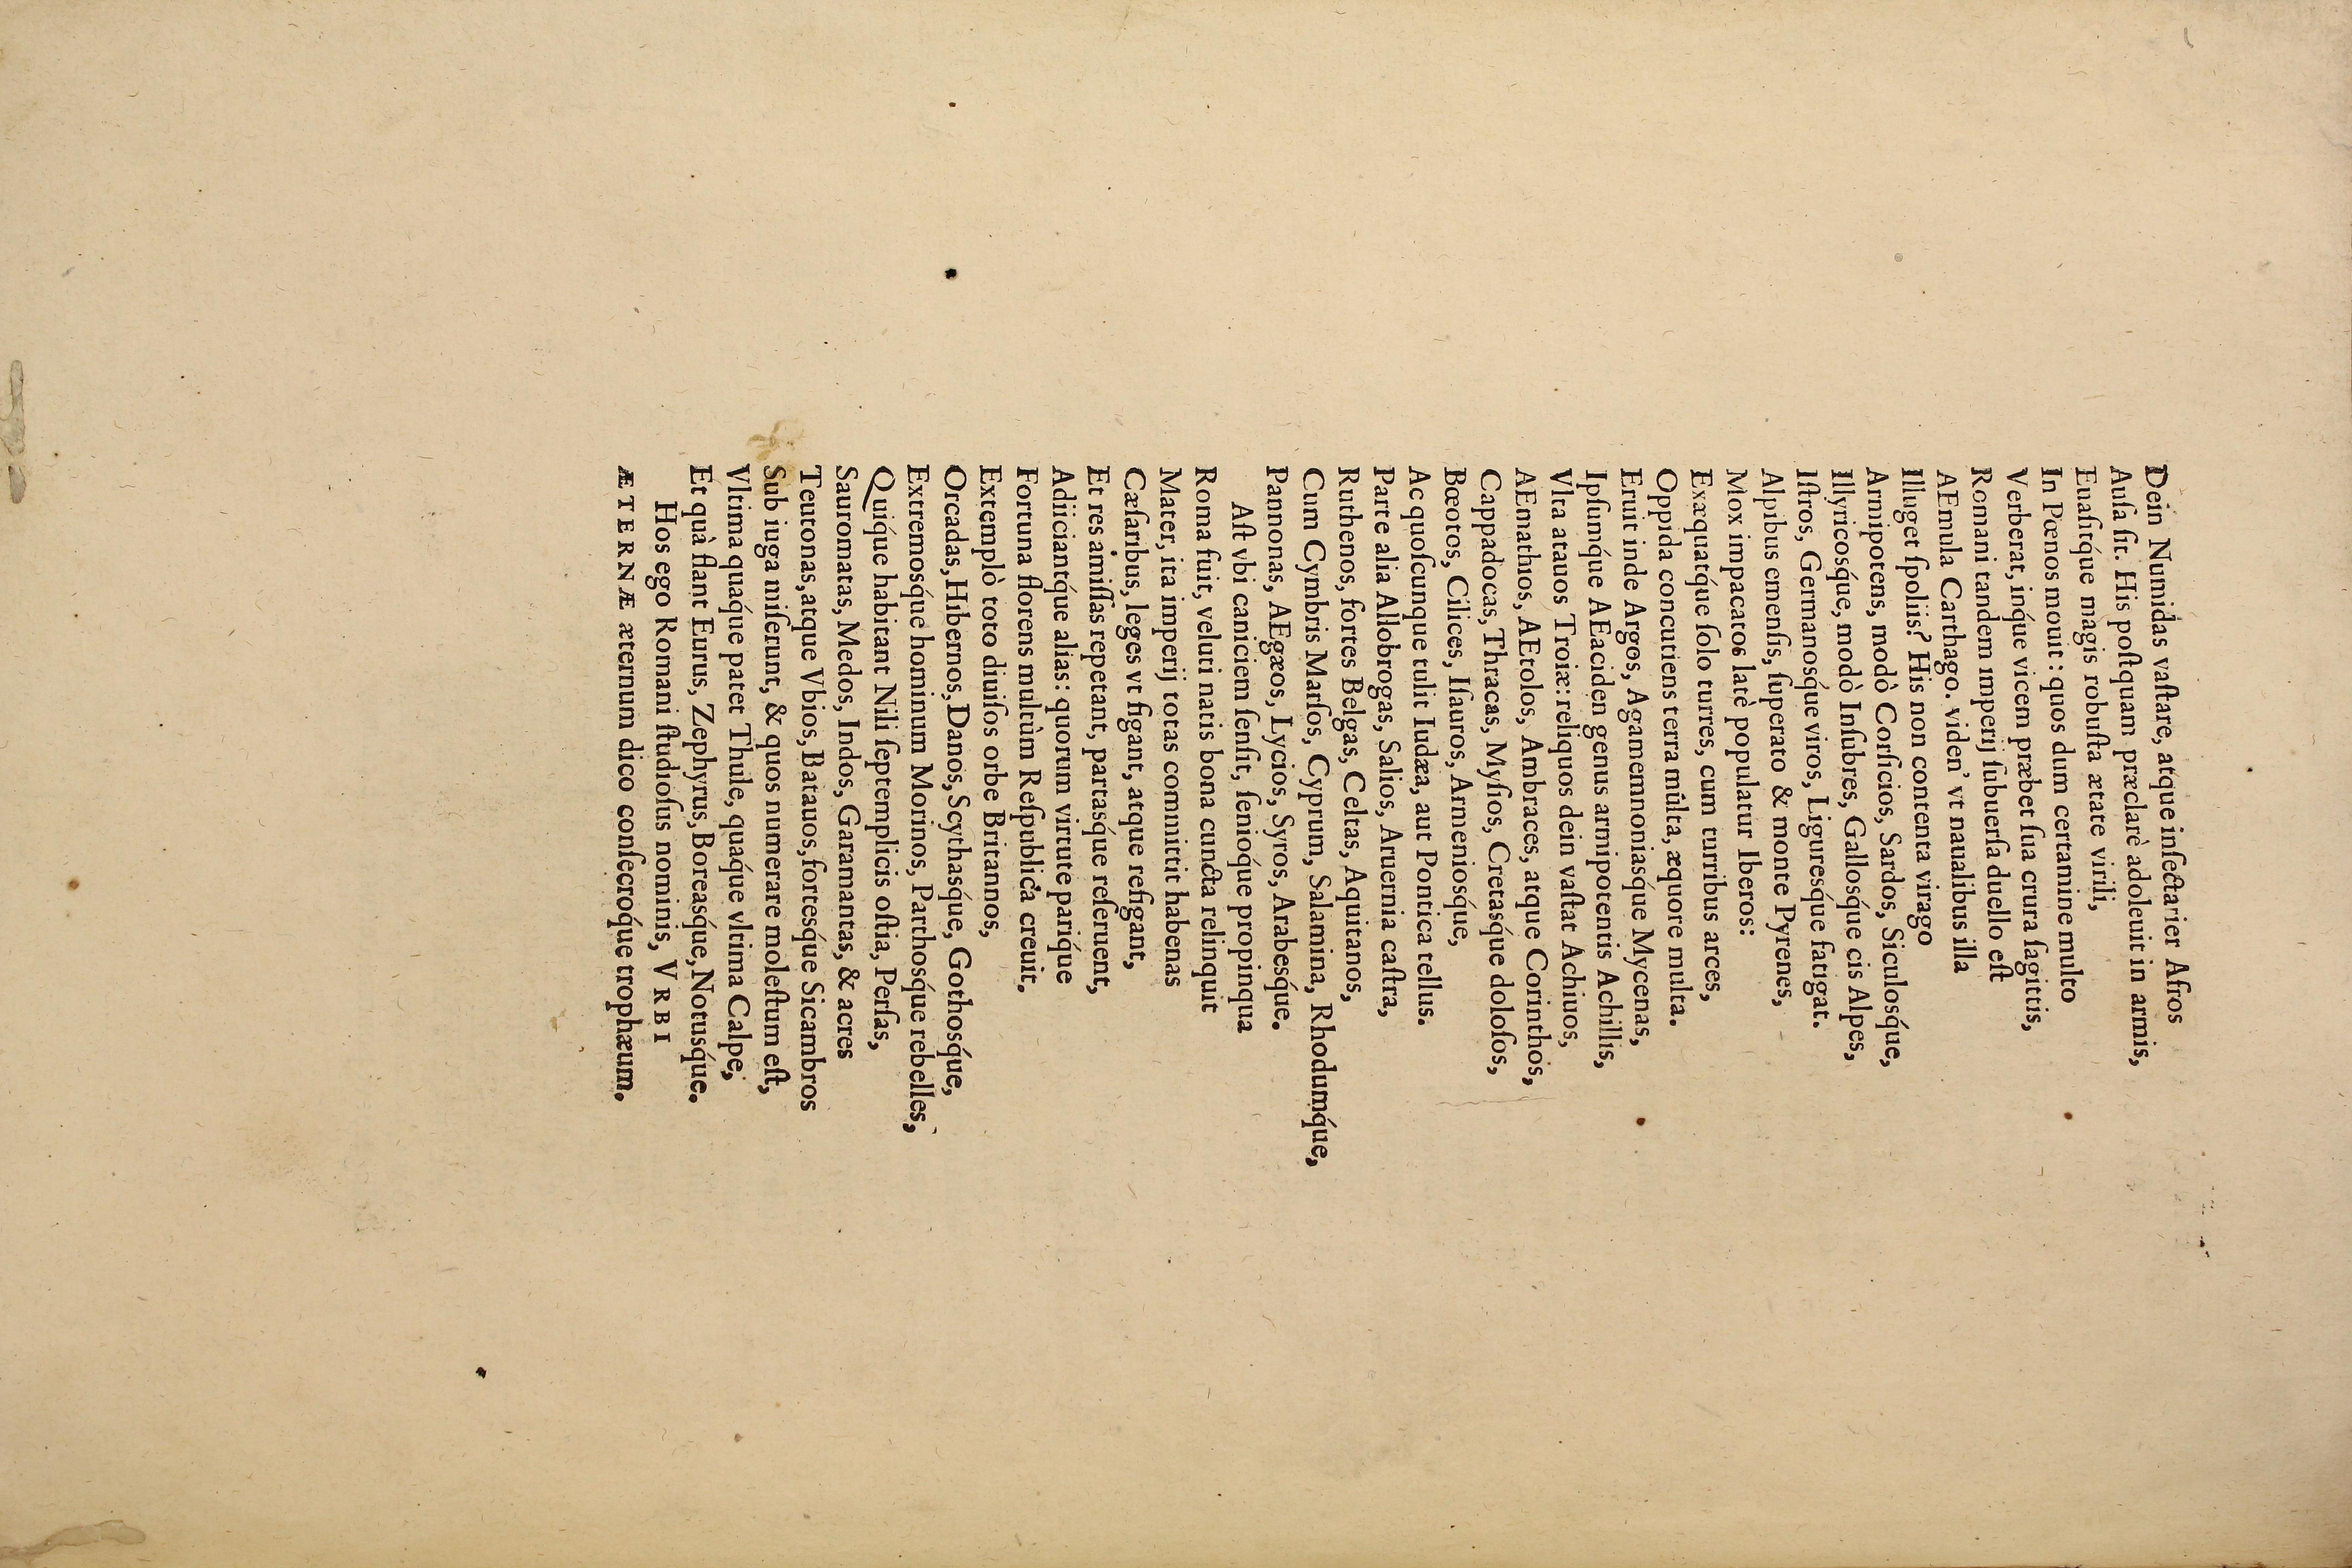 Dein Numidas vaſtare, atque inſectarier Afros
Auſa ſit. His poſtquam præclarè adoleuit in armis,
Euaſitq́ue magis robuſta ætate virili,
In Pœnos mouit: quos dum certamine multo
Verberat, inq́ue vicem præbet ſua crura ſagittis,
Romani tandem imperij ſubuerſa duello eſt
AEmula Carthago. viden' vt naualibus illa
Illuget ſpoliis? His non contenta virago
Armipotens, modò Corſicios, Sardos, Siculosq́ue,
Illyricosq́ue, modò Inſubres, Gallosq́ue cis Alpes,
Iſtros, Germanosq́ue viros, Liguresq́ue fatigat.
Alpibus emenſis, ſuperato & monte Pyrenes,
Mox impacatos latè populatur Iberos:
Exæquatq́ue ſolo turres, cum turribus arces,
Oppida concutiens terra multa, æquore multa.
Eruit inde Argos, Agamemnoniasq́ue Mycenas,
Ipſumq́ue AEaciden genus armipotentis Achillis,
Vlta atauos Troiæ: reliquos dein vaſtat Achiuos,
AEmathios, AEtolos, Ambraces, atque Corinthos,
Cappadocas, Thracas, Myſios, Cretasq́ue doloſos,
Bœotos, Cilices, Iſauros, Armeniosque,
Ac quoſcunque tulit Iudæa, aut Pontica tellus.
Parte alia Allobrogas, Salios, Aruernia caſtra,
Ruthenos, fortes Belgas, Celtas, Aquitanos,
Cum Cymbris Marſos, Cyprum, Salamina, Rhodumq́ue,
Pannonas, AEgæos, Lycios, Syros, Arabesq́ue.
Aſt vbi caniciem ſenſit, ſenioq́ue propinqua
Roma fuit, veluti natis bona cuncta relinquit
Mater, ita imperij totas committit habenas
Cæſaribus, leges vt figant, atque refigant,
Et res amiſſas repetant, partasq́ue reſeruent,
Adiiciantq́ue alias: quorum virtute pariq́ue
Fortuna florens multùm Reſpublica creuit.
Extemplò toto diuiſos orbe Britannos,
Orcadas, Hibernos, Danos, Scythasq́ue, Gothosq́ue,
Extremosq́ue hominum Morinos, Parthosq́ue rebelles,
Quiq́ue habitant Nili ſeptemplicis oſtia, Perſas,
Sauromatas, Medos, Indos, Garamantas, & acres
Teutonas, atque Vbios, Batauos, fortesq́ue Sicambros
Sub iuga miſerunt, & quos numerare moleſtum eſt,
Vltima quaq́ue patet Thule, quaq́ue vltima Calpe,
Et quà flant Eurus, Zephyrus, Boreasq́ue, Notusq́ue.
Hos ego Romani ſtudioſus nominis, VRBI
ÆTERNÆ æternum dico conſecroq́ue trophæum.